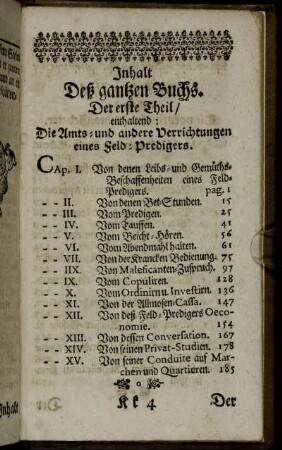 Inhalt
Deß gantzen Buchs.
Der erste Theil/
enthaltend:
Die Amts- und andere Verrichtungen
eines Feld-Predigers.
CAp. I. Von denen Leibs- und Gemüths-
Beschaffenheiten eines Feld-
Predigers. pag. 1
-- II. Von denen Bet-Stunden. 15
-- III. Vom Predigen. 25
-- IV. Vom Tauffen. 41
-- V. Vom Beicht-Hören. 56
-- VI. Vom Abendmahl halten. 61
-- VII. Von der Krancken Bedienung. 75
-- IIX. Von Maleficanten-Zuspruch. 97
-- IX. Vom Copuliren. 128
-- X. Vom Ordin. u. Investirn. 136
-- XI. Von der Allmosen-Cassa. 147
-- XII. Von deß Feld-Predigers Oeco-
nomie. 154
-- XIII. Von dessen Conversation. 167
-- XIV. Von seinen Privat-Studien. 178
-- XV. Von seiner Conduite auf Mar-
chen und Quartieren. 185
Kk 4 Der